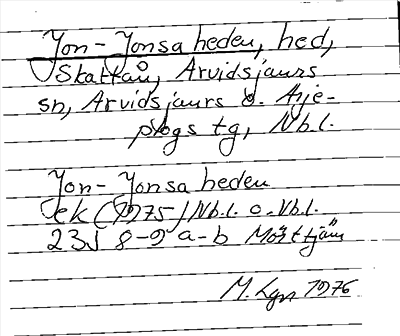 Jon-Jonsa heden, hed,
Skattån, Arvidsjaurs
sn, Arvidsjaurs o. Arje-
plogs tg, Nb.l.
Jon-Jonsa heden
Ek (1975) Nb.l. o. Vb.l.
23J 8-9 a-b Mörttjärn
M. Lgn 1976